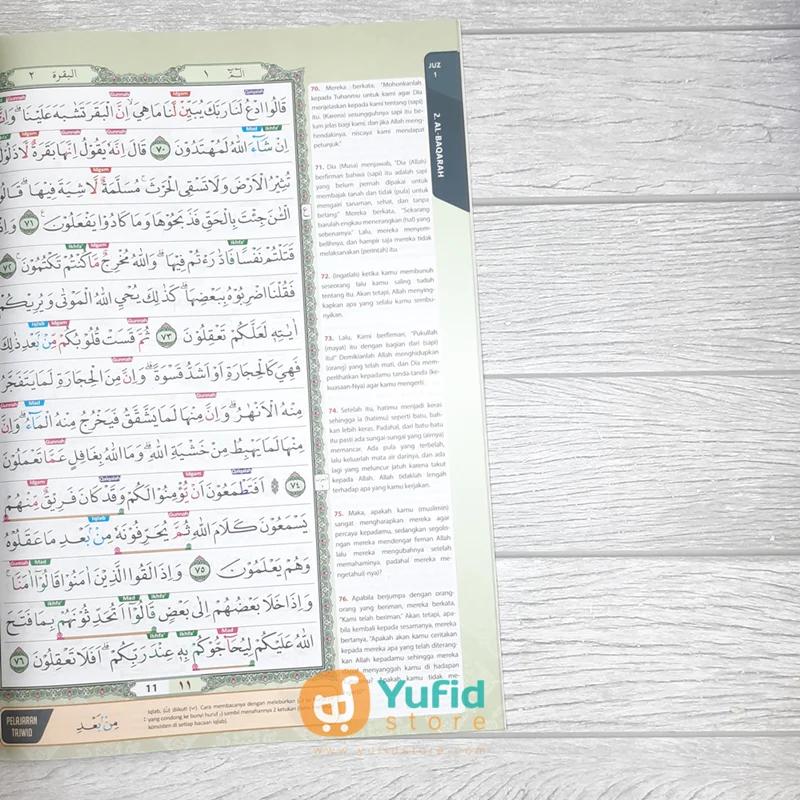 البقرة ٢
الٓمّٓ ١
JUZ
1
2. AL-BAQARAH
قَالُوا ادْعُ لَنَا رَبَّكَ يُبَيِّنْ لَّنَا مَا هِيَۙ اِنَّ الْبَقَرَ تَشٰبَهَ عَلَيْنَاۗ
اِنْ شَاۤءَ اللّٰهُ لَمُهْتَدُوْنَ ٧٠ قَالَ اِنَّهٗ يَقُوْلُ اِنَّهَا بَقَرَةٌ لَّا ذَلُوْلٌ
تُثِيْرُ الْاَرْضَ وَلَا تَسْقِى الْحَرْثَۚ مُسَلَّمَةٌ لَّا شِيَةَ فِيْهَاۗ قَالُوا
الْـٰٔنَ جِئْتَ بِالْحَقِّۗ فَذَبَحُوْهَا وَمَا كَادُوْا يَفْعَلُوْنَ ٧١ وَاِذْ
قَتَلْتُمْ نَفْسًا فَادّٰرَءْتُمْ فِيْهَاۗ وَاللّٰهُ مُخْرِجٌ مَّا كُنْتُمْ تَكْتُمُوْنَ ٧٢
فَقُلْنَا اضْرِبُوْهُ بِبَعْضِهَاۗ كَذٰلِكَ يُحْيِ اللّٰهُ الْمَوْتٰى وَيُرِيْكُمْ
اٰيٰتِهٖ لَعَلَّكُمْ تَعْقِلُوْنَ ٧٣ ثُمَّ قَسَتْ قُلُوْبُكُمْ مِّنْۢ بَعْدِ ذٰلِكَ
فَهِيَ كَالْحِجَارَةِ اَوْ اَشَدُّ قَسْوَةًۗ وَاِنَّ مِنَ الْحِجَارَةِ لَمَا يَتَفَجَّرُ
مِنْهُ الْاَنْهٰرُۗ وَاِنَّ مِنْهَا لَمَا يَشَّقَّقُ فَيَخْرُجُ مِنْهُ الْمَاۤءُۗ وَاِنَّ
مِنْهَا لَمَا يَهْبِطُ مِنْ خَشْيَةِ اللّٰهِۗ وَمَا اللّٰهُ بِغَافِلٍ عَمَّا تَعْمَلُوْنَ
٧٤ اَفَتَطْمَعُوْنَ اَنْ يُّؤْمِنُوْا لَكُمْ وَقَدْ كَانَ فَرِيْقٌ مِّنْهُمْ
يَسْمَعُوْنَ كَلَامَ اللّٰهِ ثُمَّ يُحَرِّفُوْنَهٗ مِنْۢ بَعْدِ مَا عَقَلُوْهُ
وَهُمْ يَعْلَمُوْنَ ٧٥ وَاِذَا لَقُوا الَّذِيْنَ اٰمَنُوْا قَالُوْٓا اٰمَنَّاۚ
وَاِذَا خَلَا بَعْضُهُمْ اِلٰى بَعْضٍ قَالُوْٓا اَتُحَدِّثُوْنَهُمْ بِمَا فَتَحَ
اللّٰهُ عَلَيْكُمْ لِيُحَاۤجُّوْكُمْ بِهٖ عِنْدَ رَبِّكُمْۗ اَفَلَا تَعْقِلُوْنَ ٧٦
11 ١١
70. Mereka berkata, "Mohonkanlah
kepada Tuhanmu untuk kami agar Dia
menjelaskan kepada kami tentang (sapi)
itu. (Karena) sesungguhnya sapi itu be-
lum jelas bagi kami, dan jika Allah meng-
hendakinya, niscaya kami mendapat
petunjuk."
71. Dia (Musa) menjawab, "Dia (Allah)
berfirman bahwa (sapi) itu adalah sapi
yang belum pernah dipakai untuk
membajak tanah dan tidak (pula) untuk
mengairi tanaman, sehat, dan tanpa
belang." Mereka berkata, "Sekarang
barulah engkau menerangkan (hal) yang
sebenarnya." Lalu, mereka menyem-
belihnya, dan hampir saja mereka tidak
melaksanakan (perintah) itu.
72. (Ingatlah) ketika kamu membunuh
seseorang lalu kamu saling tuduh
tentang itu. Akan tetapi, Allah menying-
kapkan apa yang selalu kamu sembu-
nyikan.
73. Lalu, Kami berfirman, "Pukullah
(mayat) itu dengan bagian dari (sapi)
itu!" Demikianlah Allah menghidupkan
(orang) yang telah mati, dan Dia mem-
perlihatkan kepadamu tanda-tanda (ke-
kuasaan-Nya) agar kamu mengerti.
74. Setelah itu, hatimu menjadi keras
sehingga ia (hatimu) seperti batu, bah-
kan lebih keras. Padahal, dari batu-batu
itu pasti ada sungai-sungai yang (airnya)
memancar. Ada pula yang terbelah,
lalu keluarlah mata air darinya, dan ada
lagi yang meluncur jatuh karena takut
kepada Allah. Allah tidaklah lengah
terhadap apa yang kamu kerjakan.
75. Maka, apakah kamu (muslimin)
sangat mengharapkan mereka agar
percaya kepadamu, sedangkan segolo-
ngan mereka mendengar firman Allah
lalu mereka mengubahnya setelah
memahaminya, padahal mereka me-
ngetahui(-nya)?
76. Apabila berjumpa dengan orang-
orang yang beriman, mereka berkata,
"Kami telah beriman." Akan tetapi, apa-
bila kembali kepada sesamanya, mereka
bertanya, "Apakah akan kamu ceritakan
kepada mereka apa yang telah diterang-
kan Allah kepadamu sehingga mereka
menyanggah kamu di hadapan
kamu tidak me-
PELAJARAN
TAJWID
مِنْۢ بَعْدِ
Iqlab, diikuti (ب). Cara membacanya dengan meleburkan
yang condong ke bunyi huruf (م) sambil menahannya 2 ketukan
konsisten di setiap bacaan Iqlab).
Yufid
store
www.yufidstore.com